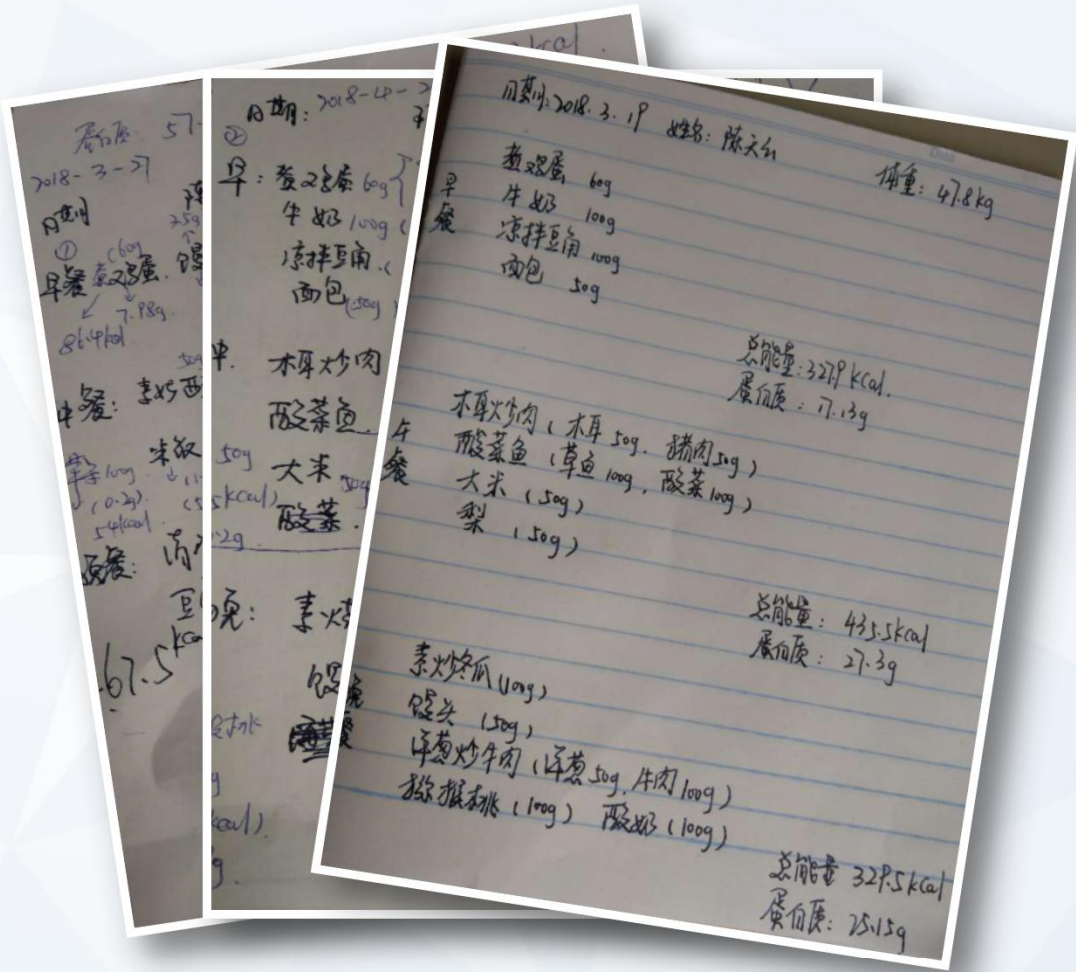 kcal
蛋白质: 57.
2018-3-27
日期
① 25g
(60g
早餐 煮鸡蛋. 馒
7.98g.
86.4kcal
50g
中餐: 素炒西
米饭
100g
(0.2g)
54kcal
晚餐:
67.5kcal
日期: 2018-4-2
②
早: 煮鸡蛋 60g
牛奶 100g (
凉拌豆角. (
面包 (50g)
中. 木耳炒肉
酸菜鱼.
50g 大米 50g
(55kcal) 酸菜.
.2g
晚: 素炒
馒
kcal)
g.
日期: 2018. 3. 19 姓名: 陈天 体重: 47.8kg
早餐
煮鸡蛋 60g
牛奶 100g
凉拌豆角 100g
面包 50g
总能量: 327.9 kcal.
蛋白质: 17.13g
午餐
木耳炒肉 (木耳 50g. 猪肉 50g)
酸菜鱼 (草鱼 100g, 酸菜 100g)
大米 (50g)
梨 (50g)
总能量: 435.5kcal
蛋白质: 27.3g
晚餐
素炒冬瓜 (100g)
馒头 (50g)
洋葱炒牛肉 (洋葱 50g, 牛肉 100g)
猕猴桃 (100g) 酸奶 (100g)
总能量 329.5kcal
蛋白质: 25.15g